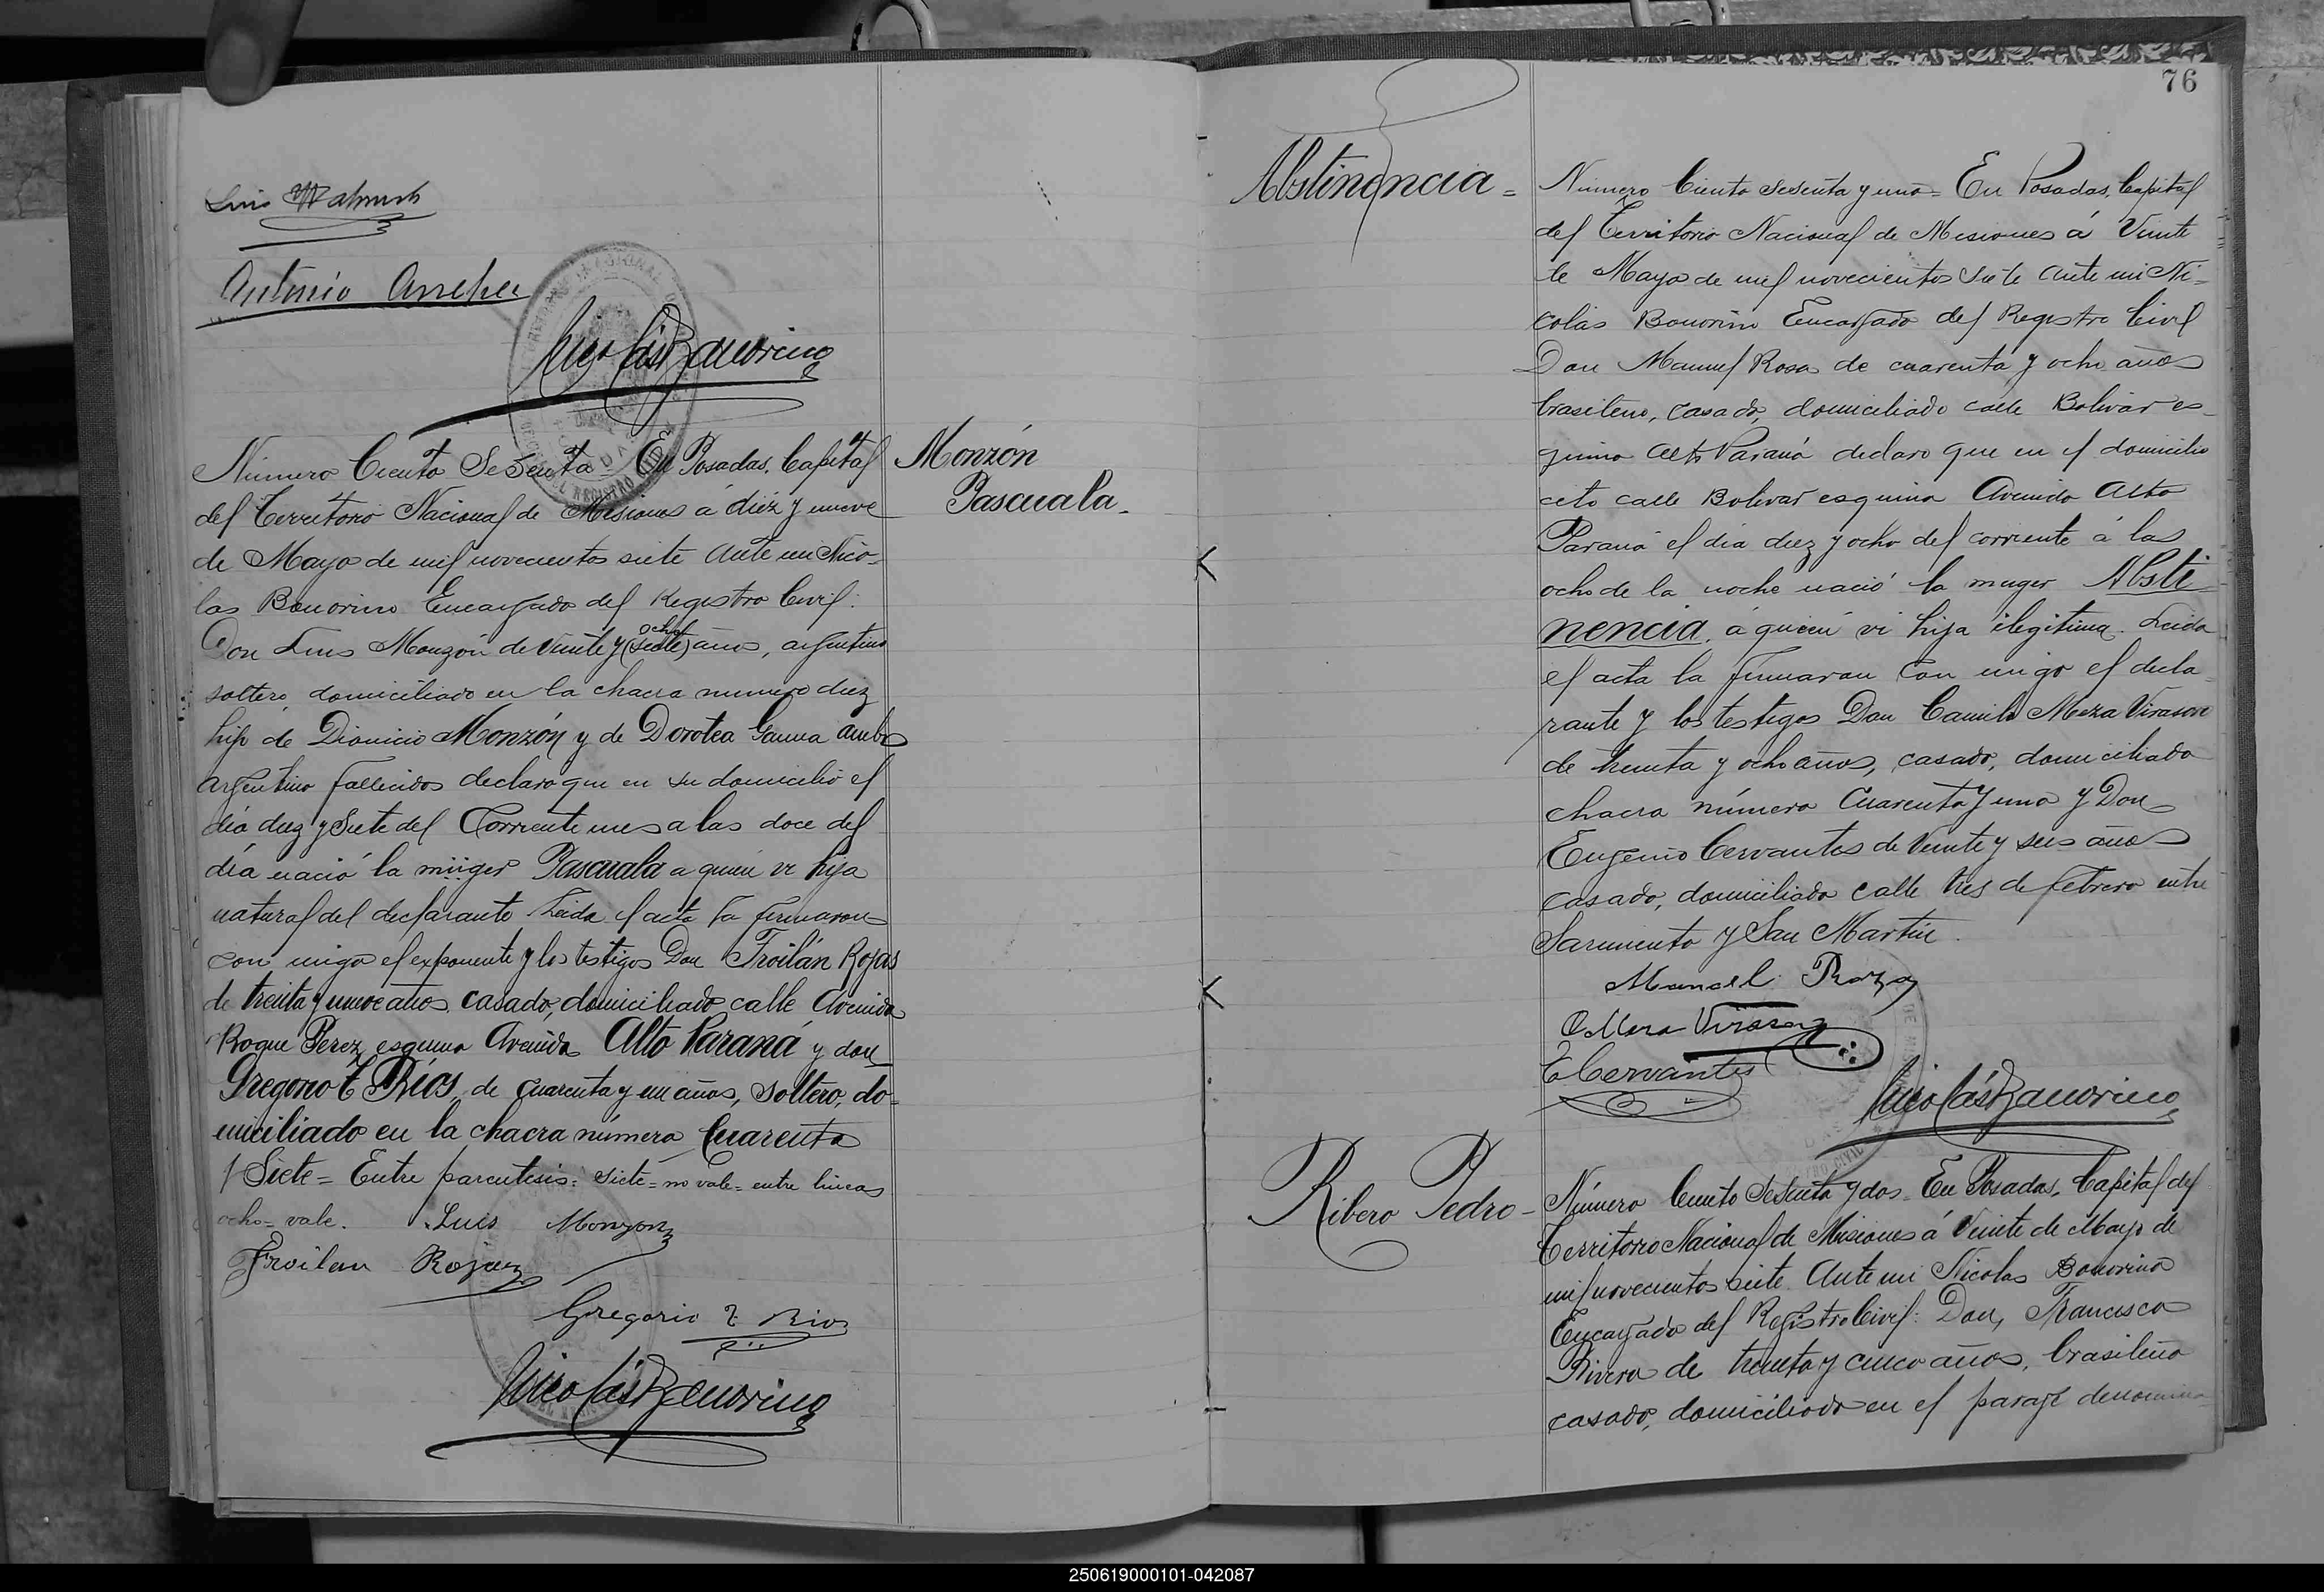 Luis
Antonio
Nicolás Bonorino
Número Ciento Sesenta = En Posadas, Capital
del Territorio Nacional de Misiones á diéz y nueve
de Mayo de mil novecientos siete Ante mi Nico-
las Bonorino Encargado del Registro Civil:
ocho
Don Luis Monzón de Veinte y (siete) años, argentino
soltero, domiciliado en la chacra numero diez
hijo de Dionicio Monzón y de Dorotea Gauna ambos
Argentino fallecidos declaro que en su domicilio el
día diez y Siete del Corriente mes a las doce del
día nació la muger Pascuala a quien vi hija
natural del declarante Leida el acta la firmaron
con migo el exponente y los testigos Don Froilán Rojas
de treita y nueve años, casado, domiciliado calle Avenida
Roque Perez esquina Avenida Alto Paraná y don
Gregorio T. Ríos, de cuarenta y un años, soltero, do-
miciliado en la chacra número Cuarenta
y Siete = Entre parentesis: siete = no vale = entre lineas
ocho = vale. Luis Monzon
Froilan Rojas
Gregorio T. Rios
Nicolás Bonorino
Monzón
Pascuala.
76
Abstinencia =
Número Ciento sesenta y uno = En Posadas, Capital
del Territorio Nacional de Misiones á Veinte
de Mayo de mil novecientos siete Ante mi Ni-
colás Bonorino Encargado del Registro Civil
Don Manuel Rosa de cuarenta y ocho años
brasileno, casado, domiciliado calle Bolivar es-
quina Alto Paraná declaro que en el domicilio
cito calle Bolivar esquina Avenida Alto
Paraná el día diez y ocho del corriente á las
ocho de la noche nació la muger Absti
nencia, á quien vi hija ilegitima. Leida
el acta la firmaron con migo el decla-
rante y los testigos Don Camilo Meza Virasoro
de treinta y ocho años, casado, domiciliado
chacra número Cuarenta y uno y Don
Eugenio Cervantes de Veinte y seis años
casado, domiciliado calle tres de febrero entre
Sarmiento y San Martín.
Manuel Roza
C Meza Virasoro
E Cervantes
Nicolás Bonorino
Ribero Pedro -
Número Ciento Sesenta y dos = En Posadas, Capital del
Territorio Nacional de Misiones á Veinte de Mayo de
mil novecientos siete. Ante mi Nicolas Bonorino
Encargado del Registro Civil: Don, Francisco
Rivero de treinta y cinco años, brasileño
casado, domiciliado en el paraje denomina-
250619000101-042087